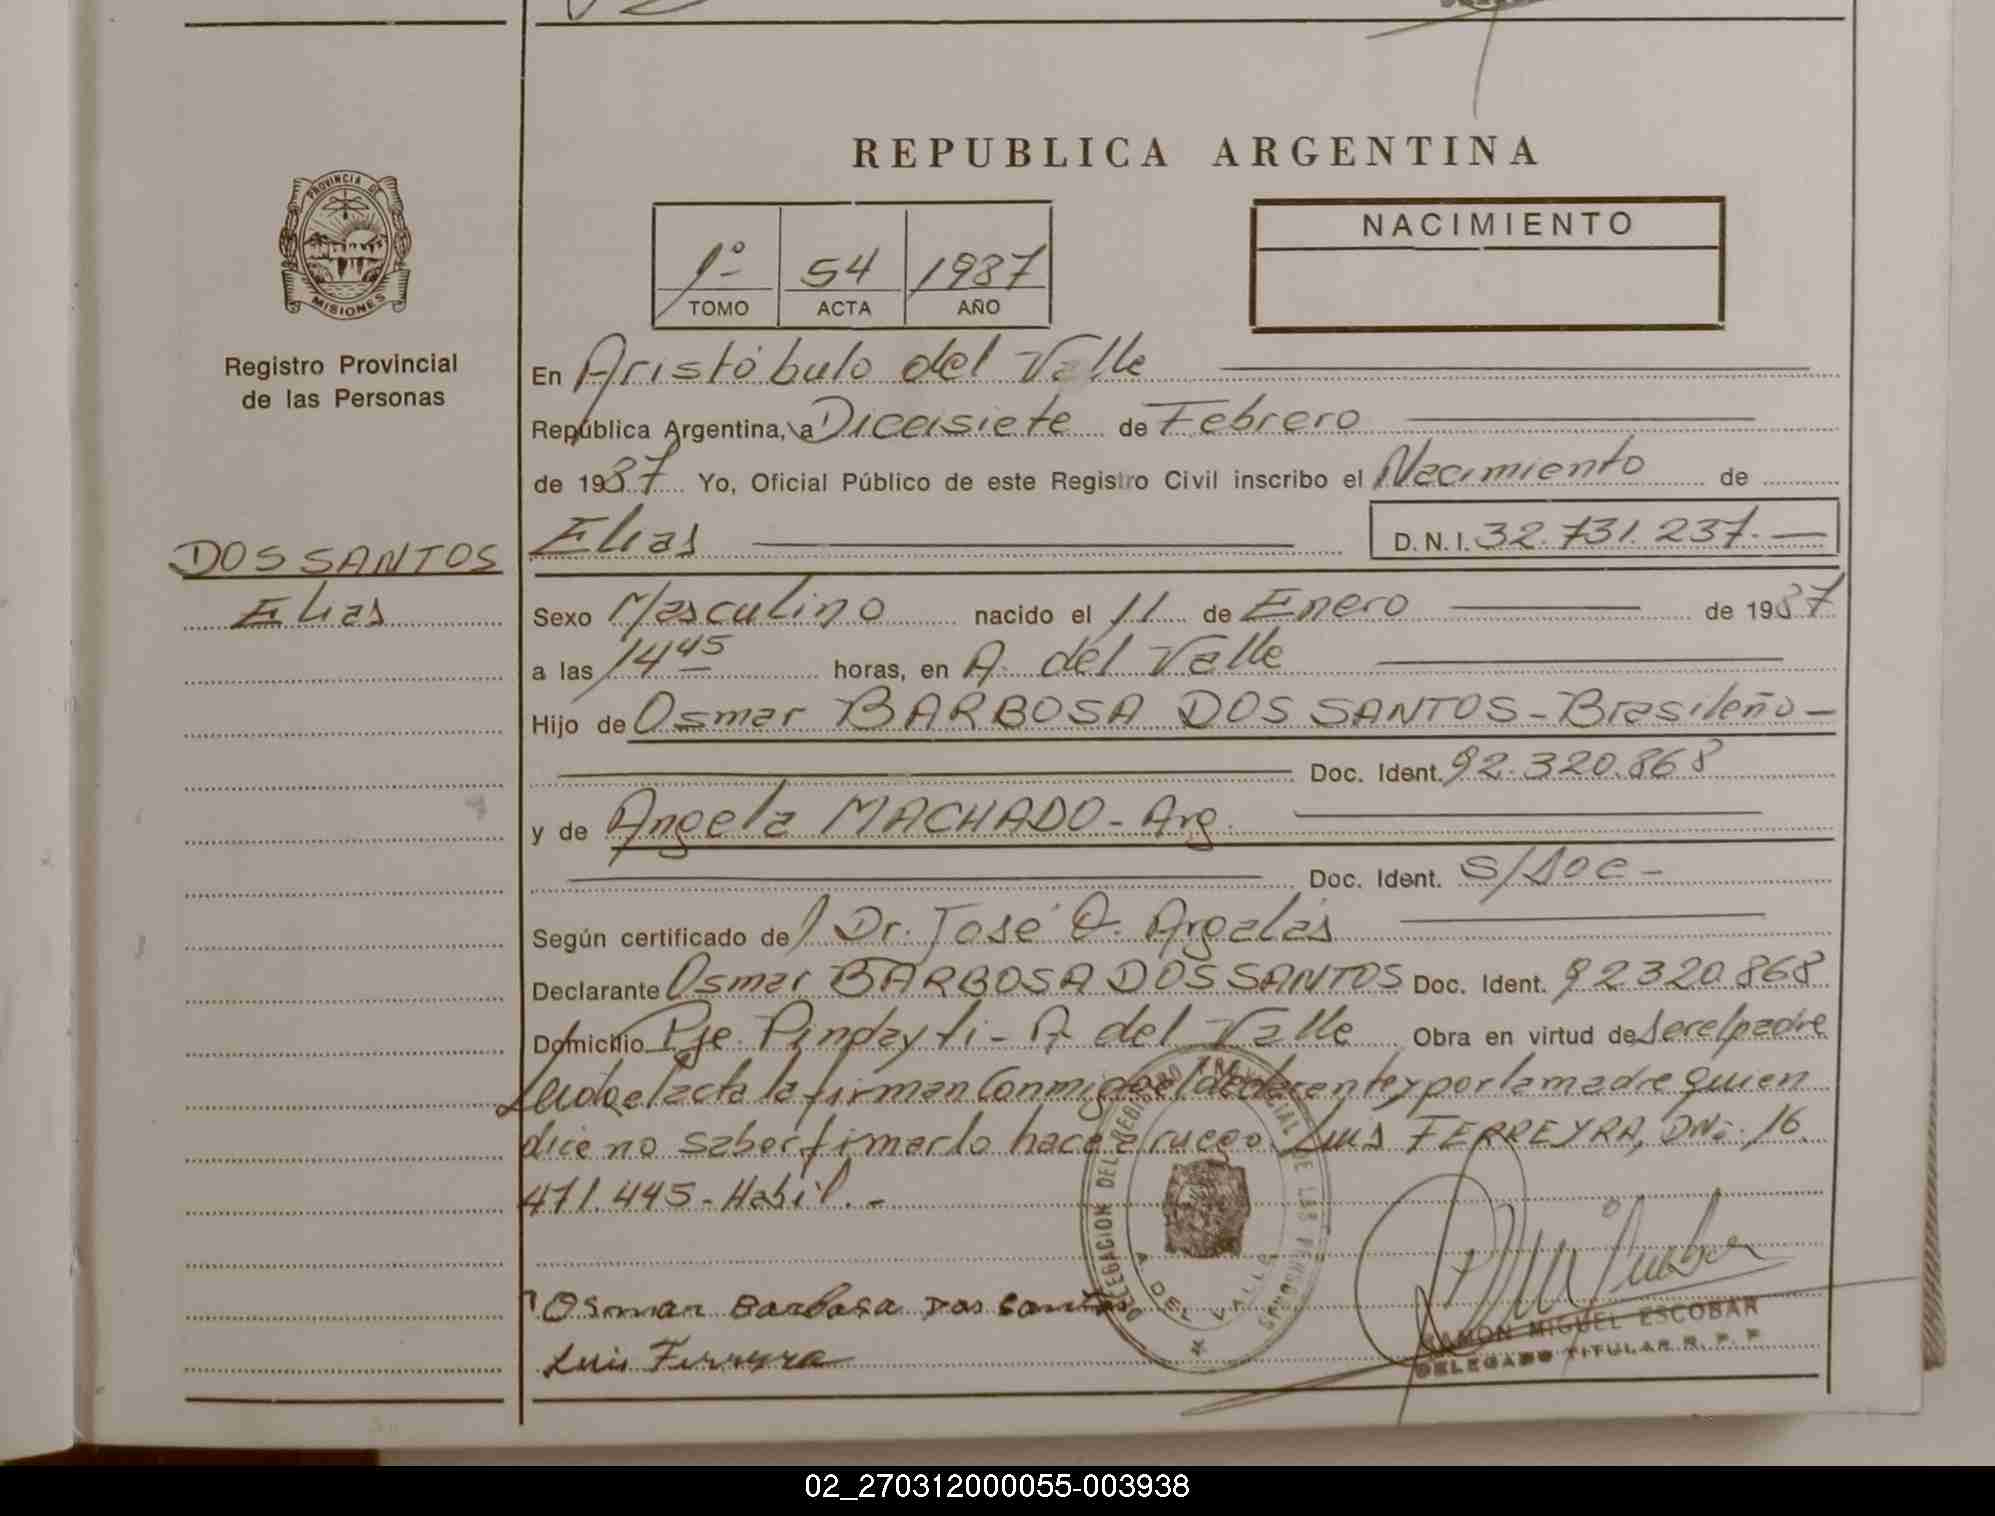 REPUBLICA ARGENTINA
PROVINCIA DE
MISIONES
Registro Provincial
de las Personas
1º 54 1987
TOMO ACTA AÑO
NACIMIENTO
En Aristóbulo del Valle
República Argentina, a Diecisiete de Febrero
de 1987 Yo, Oficial Público de este Registro Civil inscribo el Nacimiento de
Elias D.N.I. 32.731.237.—
DOS SANTOS
Elias
Sexo Masculino nacido el 11 de Enero de 1987
a las 14 45 horas, en A. del Valle
Hijo de Osmar BARBOSA DOS SANTOS - Brasileño -
Doc. Ident. 92.320.868
y de Angela MACHADO - Arg.
Doc. Ident. S/Doc -
Según certificado de Dr. José O. Argalas
Declarante Osmar BARBOSA DOS SANTOS Doc. Ident. 92320.868
Domicilio Pje Pindayti - A del Valle Obra en virtud de ser el padre
Leida el acta la firman conmigo el declarante y por la madre quien
dice no saber firmar lo hace a ruego Luis FERREYRA, DNi. 16.
471.445 - Habil. -
DELEGACION DEL REGISTRO PROVINCIAL DE LAS PERSONAS
A. DEL VALLE
Osmar Barbosa Dos Santos
Luis Ferreyra
RAMON MIGUEL ESCOBAR
DELEGADO TITULAR R. P. P.
02_270312000055-003938